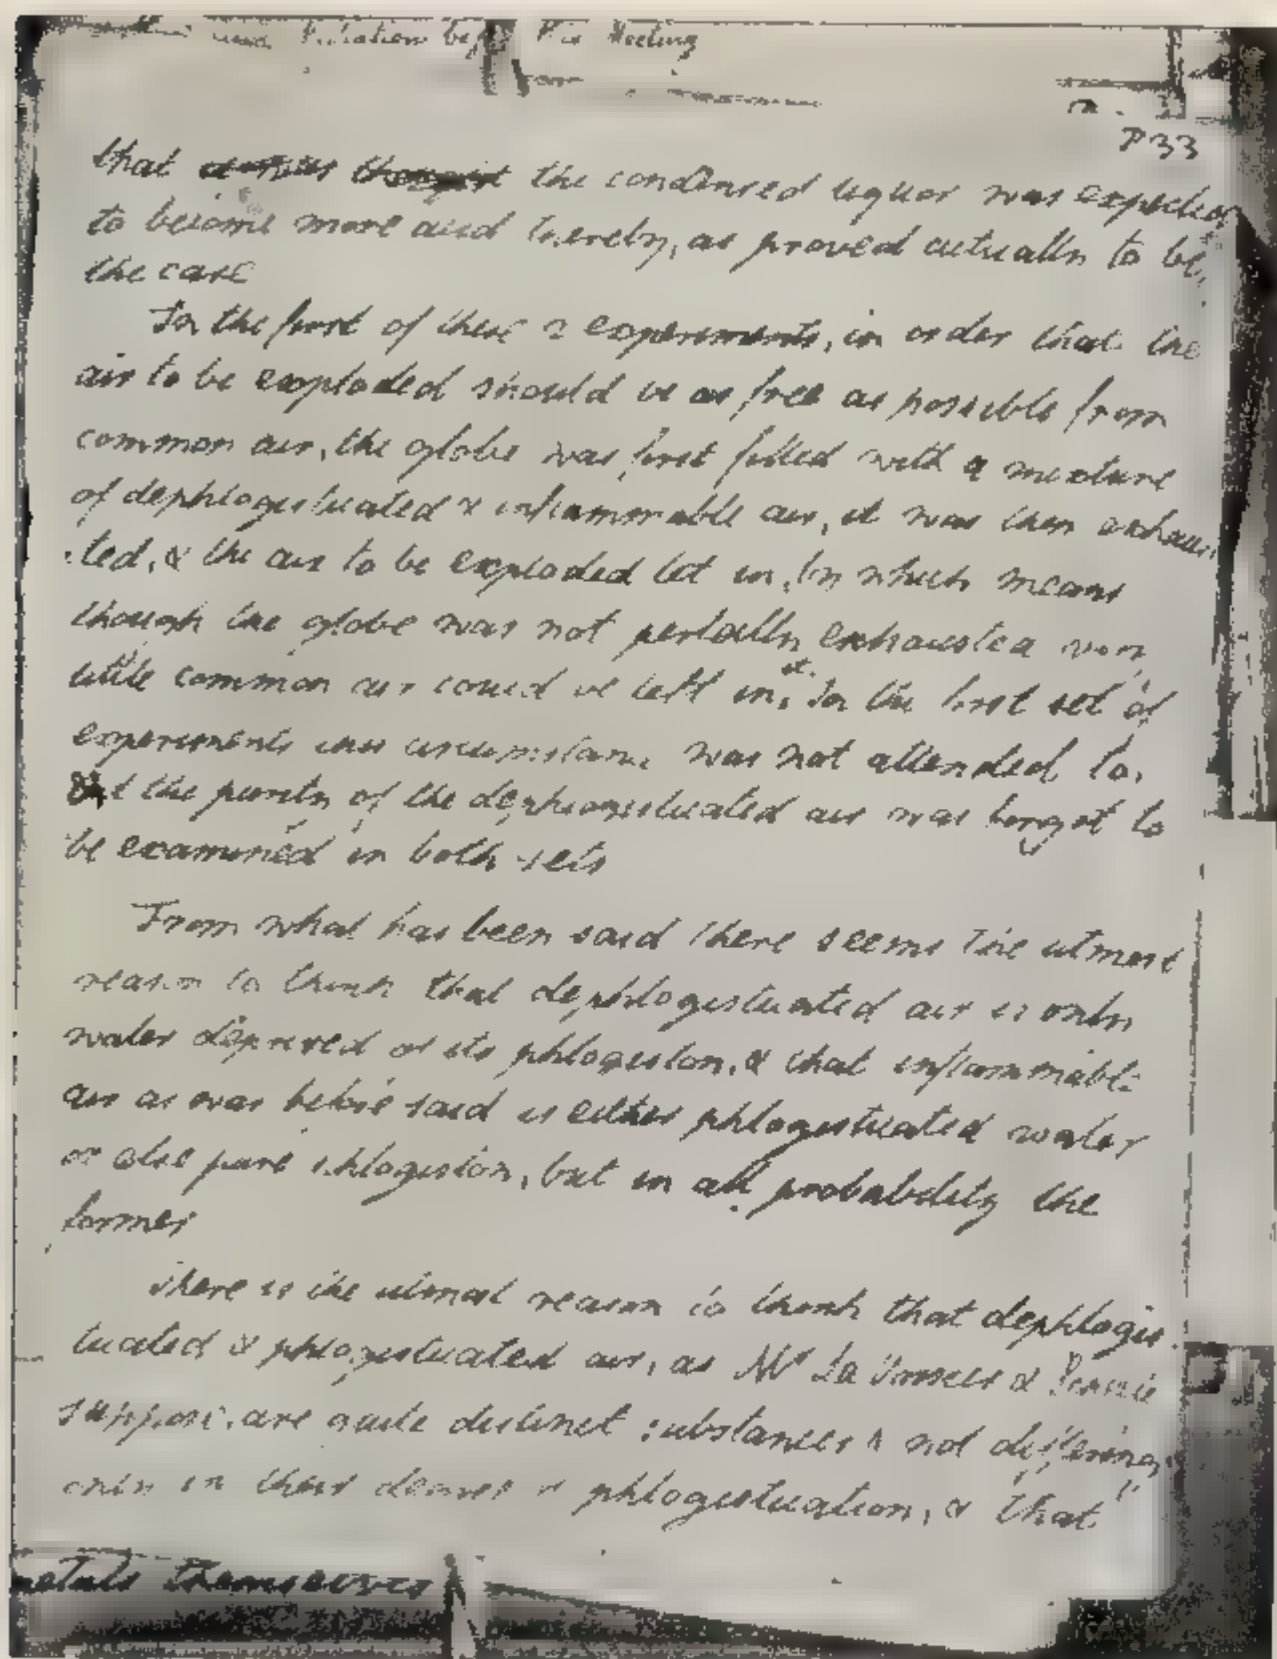 Meeting
P33
that the condensed liquor was expected
to become more acid thereby, as proved actually to be
the case
In the first of these 2 experiments, in order that the
air to be exploded should be as free as possible from
common air, the globe was first filled with a mixture
of dephlogisticated & inflammable air, it was then exhaus
ted, & the air to be exploded let in, by which means
though the globe was not perfectly exhausted very
little common air could be left in it. In the first set of
experiments this circumstance was not attended to,
& the purity of the dephlogisticated air was forgot to
be examined in both sets
From what has been said there seems the utmost
reason to think that dephlogisticated air is only
water deprived of its phlogiston, & that inflammable
air as was before said is either phlogisticated water
or else pure phlogiston, but in all probability the
former
There is the utmost reason to think that dephlogis
ticated & phlogisticated air, as Mr La & 
suppose, are quite distinct substances & not differing
only in their degree of phlogistication, & that
metals themselves